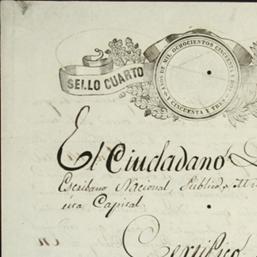 SELLO CUARTO
AÑOS DE MIL OCHOCIENTOS CINCUENTA Y
CINCUENTA Y TRES
El Ciudadano
Escribano Nacional, Publico
Capital,
Certifico